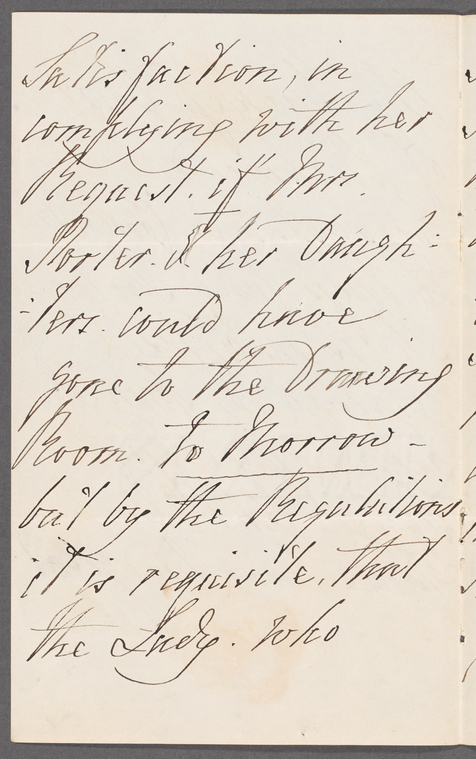 Satisfaction, in
complying with her
Request. if Mrs.
Porter. & her Daugh:
-ters. could have
gone to the Drawing
Room. to Morrow -
but by the Regulations
it is requisite, that
the Lady. who